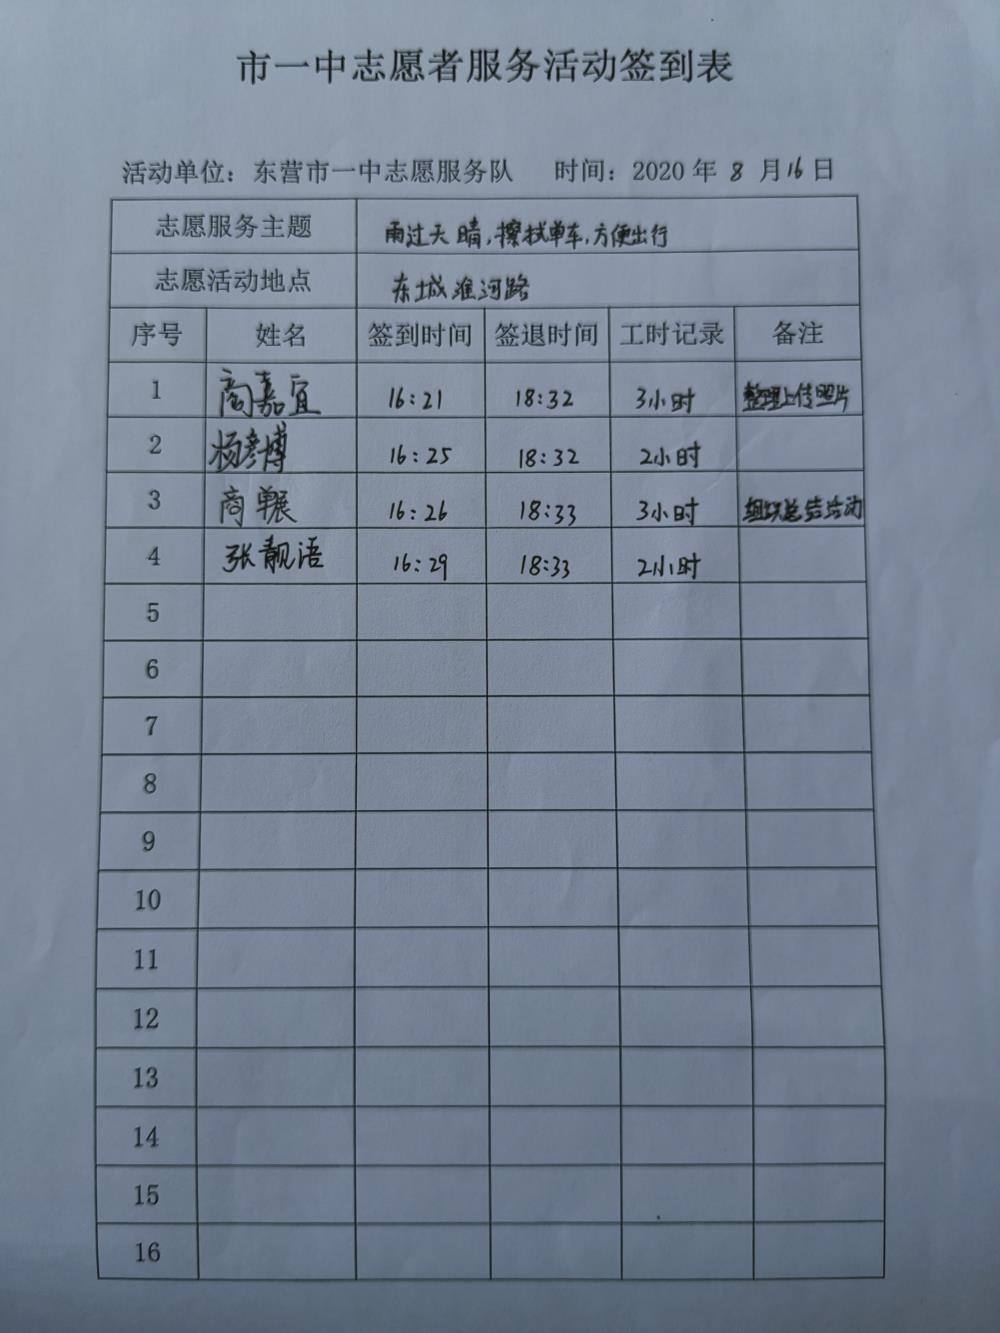 市一中志愿者服务活动签到表
活动单位：东营市一中志愿服务队 时间：2020年 8 月16日
志愿服务主题 雨过天晴,擦拭单车,方便出行
志愿活动地点 东城淮河路
序号 姓名 签到时间 签退时间 工时记录 备注
1 商嘉宜 16:21 18:32 3小时 整理上传照片
2 杨彦博 16:25 18:32 2小时
3 商 16:26 18:33 3小时 组织总结活动
4 张靓语 16:29 18:33 2小时
5
6
7
8
9
10
11
12
13
14
15
16